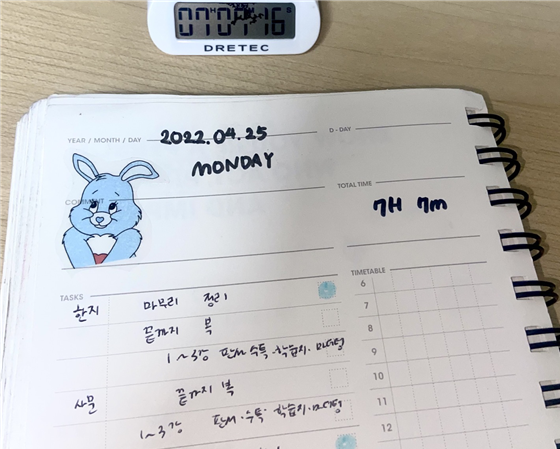 07 07 16
DRETEC
YEAR / MONTH / DAY 2022.04.25 D - DAY
MONDAY
COMMENT TOTAL TIME
7H 7m
TASKS TIMETABLE
6
한지 마무리 정리
7
끝까지 복
8
1~3강 판서·수특·학습지·마더텅
9
사문 끝까지 복
10
1~3강 판서·수특·학습지·마더텅
11
12